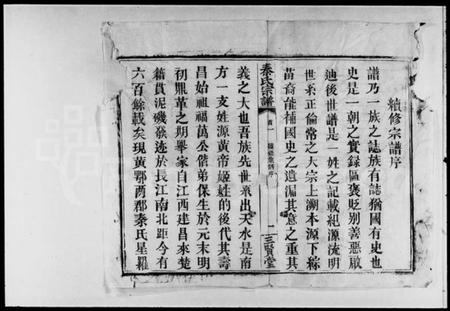 續修宗譜序
譜乃一族之誌族有誌猶國有史也
史是一朝之實録區褒貶别善惡厥
迪後世譜是一姓之記載紀源流明
世系正倫常之大宗上溯本源下綜
苗裔能補國史之遺漏其意之重其
秦氏宗譜
首一
三賢堂
義之大也吾族先世系出天水是南
方一支姓源黄帝姬姓的後代其壽
昌始祖福萬公偕弟保生於元末明
初鼎革之期舉家自江西建昌來楚
籍貫泥磯發迹於長江南北距今有
六百餘載矣現黄鄂兩郡秦氏星羅